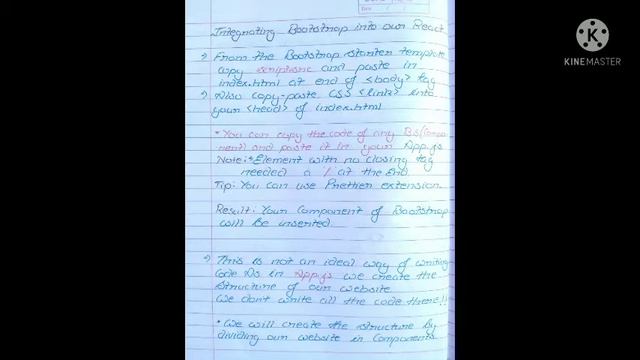 Date
Integrating Bootstrap into our React
→ From the Bootstrap starter template
copy script src and paste in
index.html at end of <body> tag
→ Also copy-paste CSS <link> into
your <head> of index.html
* You can copy the code of any BS(Compo
nent) and paste it in your App.js
Note:* Element with no closing tag
needed a '/' at the End.
Tip: You can use Prettier extension.
Result: Your Component of Bootstrap
will be inserted
→ This is not an ideal way of writing
Code As in App.js we create the
structure of our website
We don't write all the code there!!
* We will create the structure by
dividing our website in Components
K
KINEMASTER